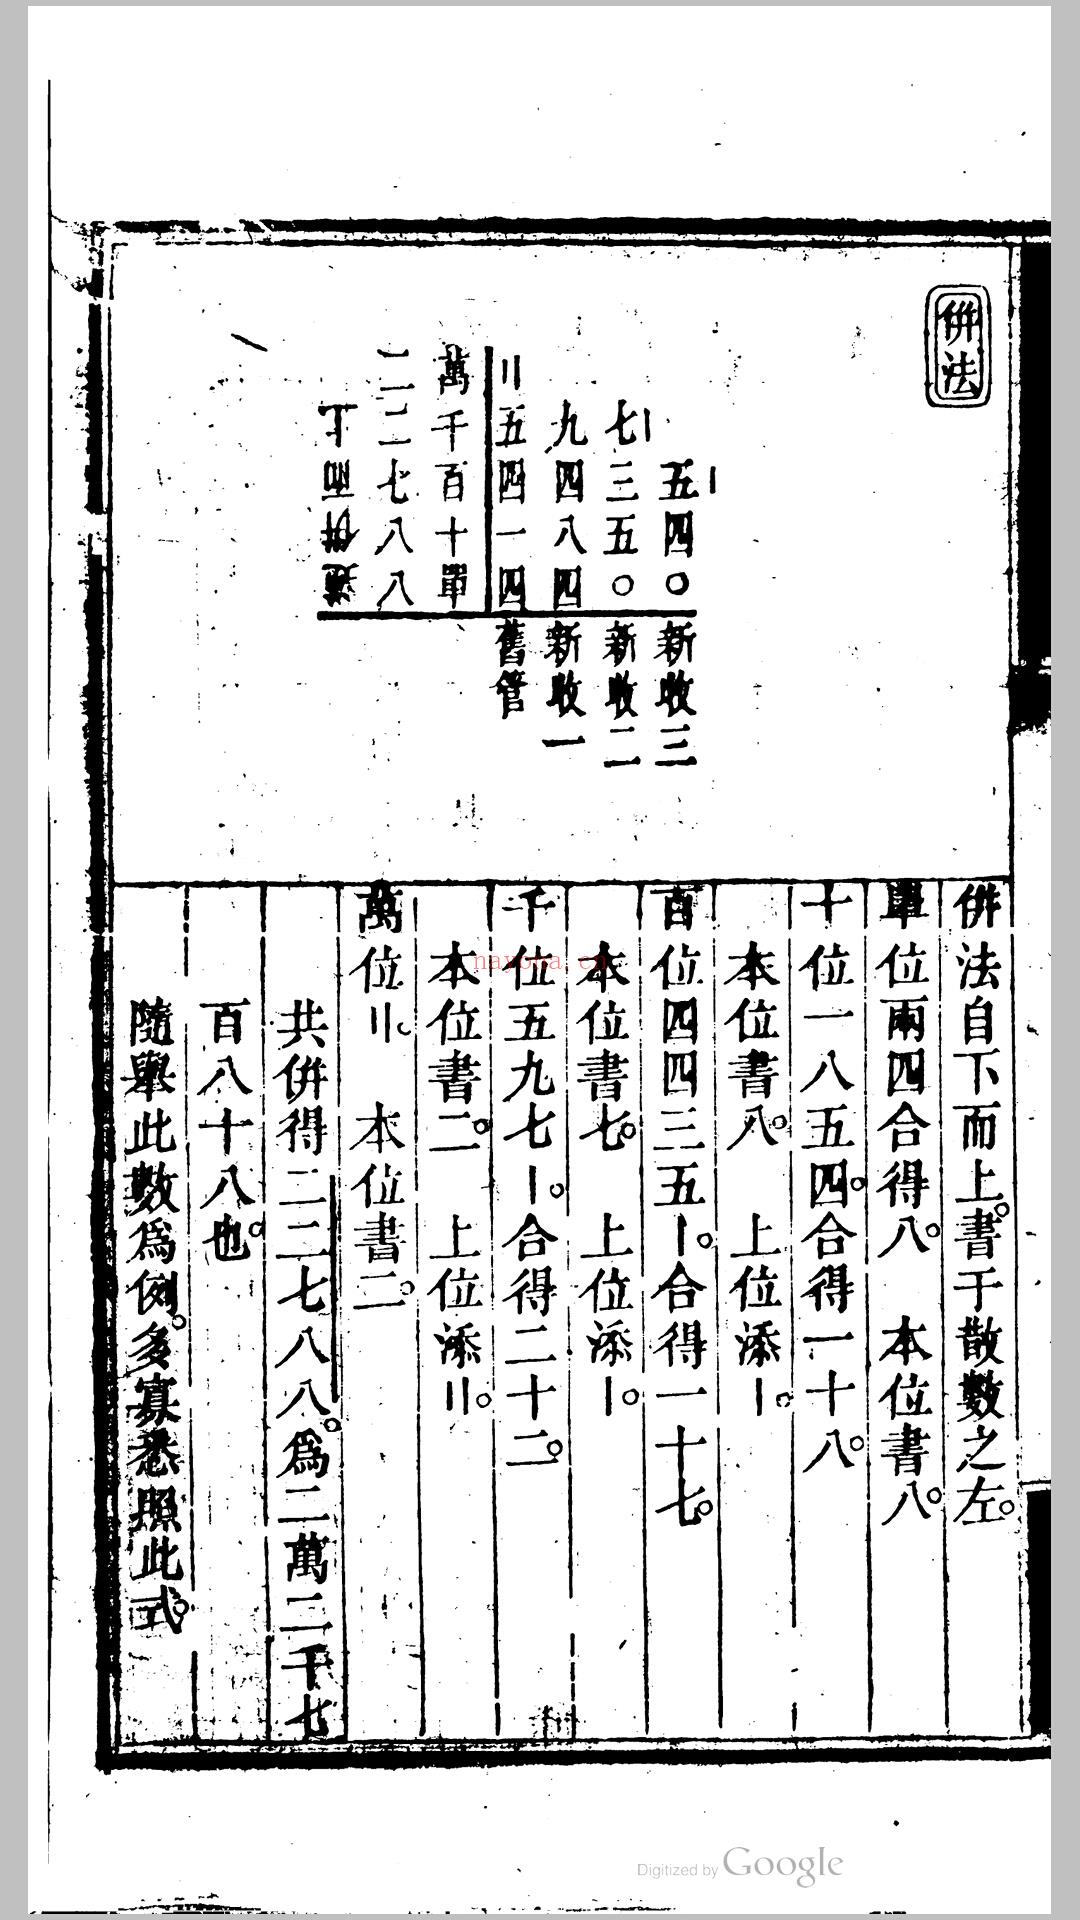 併法
五〡四〇新收三
七〡三五〇新收二
九四八四新收一
〢五四一四舊管
萬千百十單
二二七八八
併法自下而上。書于散數之左。
單位兩四合得八。　本位書八。
十位一八五四。合得一十八。
本位書八。　上位添〡。
百位四四三五〡。合得一十七。
本位書七。　上位添〡。
千位五九七〡。合得二十二。
本位書二。　上位添〢。
萬位〢。　本位書二。
共併得二二七八八。爲二萬二千七
百八十八也。
隨舉此數爲例。多寡悉照此式。
nayona.cn
Digitized by Google